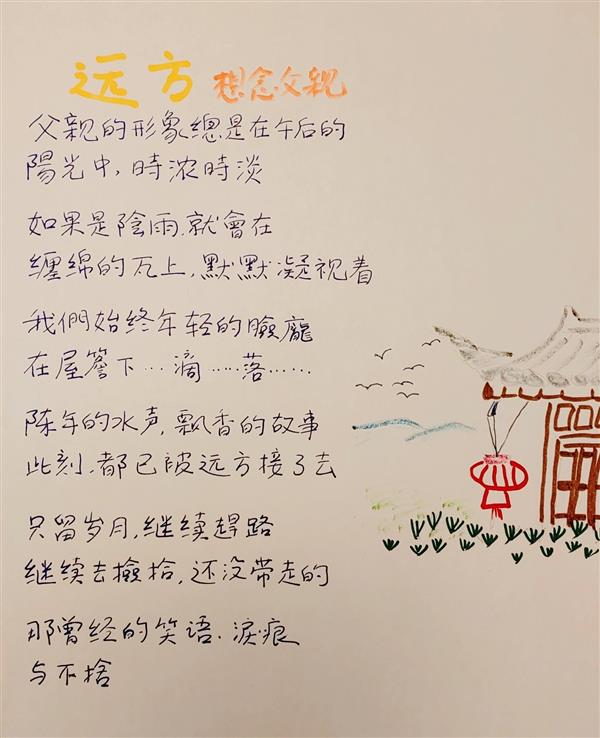 远方 想念父親
父親的形象總是在午后的
陽光中,時浓時淡
如果是陰雨.就會在
缠綿的瓦上,默默凝視着
我們始终年轻的臉龐
在屋簷下…滴……落……
陈年的水声,飄香的故事
此刻.都已被远方接了去
只留岁月,继续趕路
继续去撿拾,还没带走的
那曾经的笑语.淚痕
与不捨